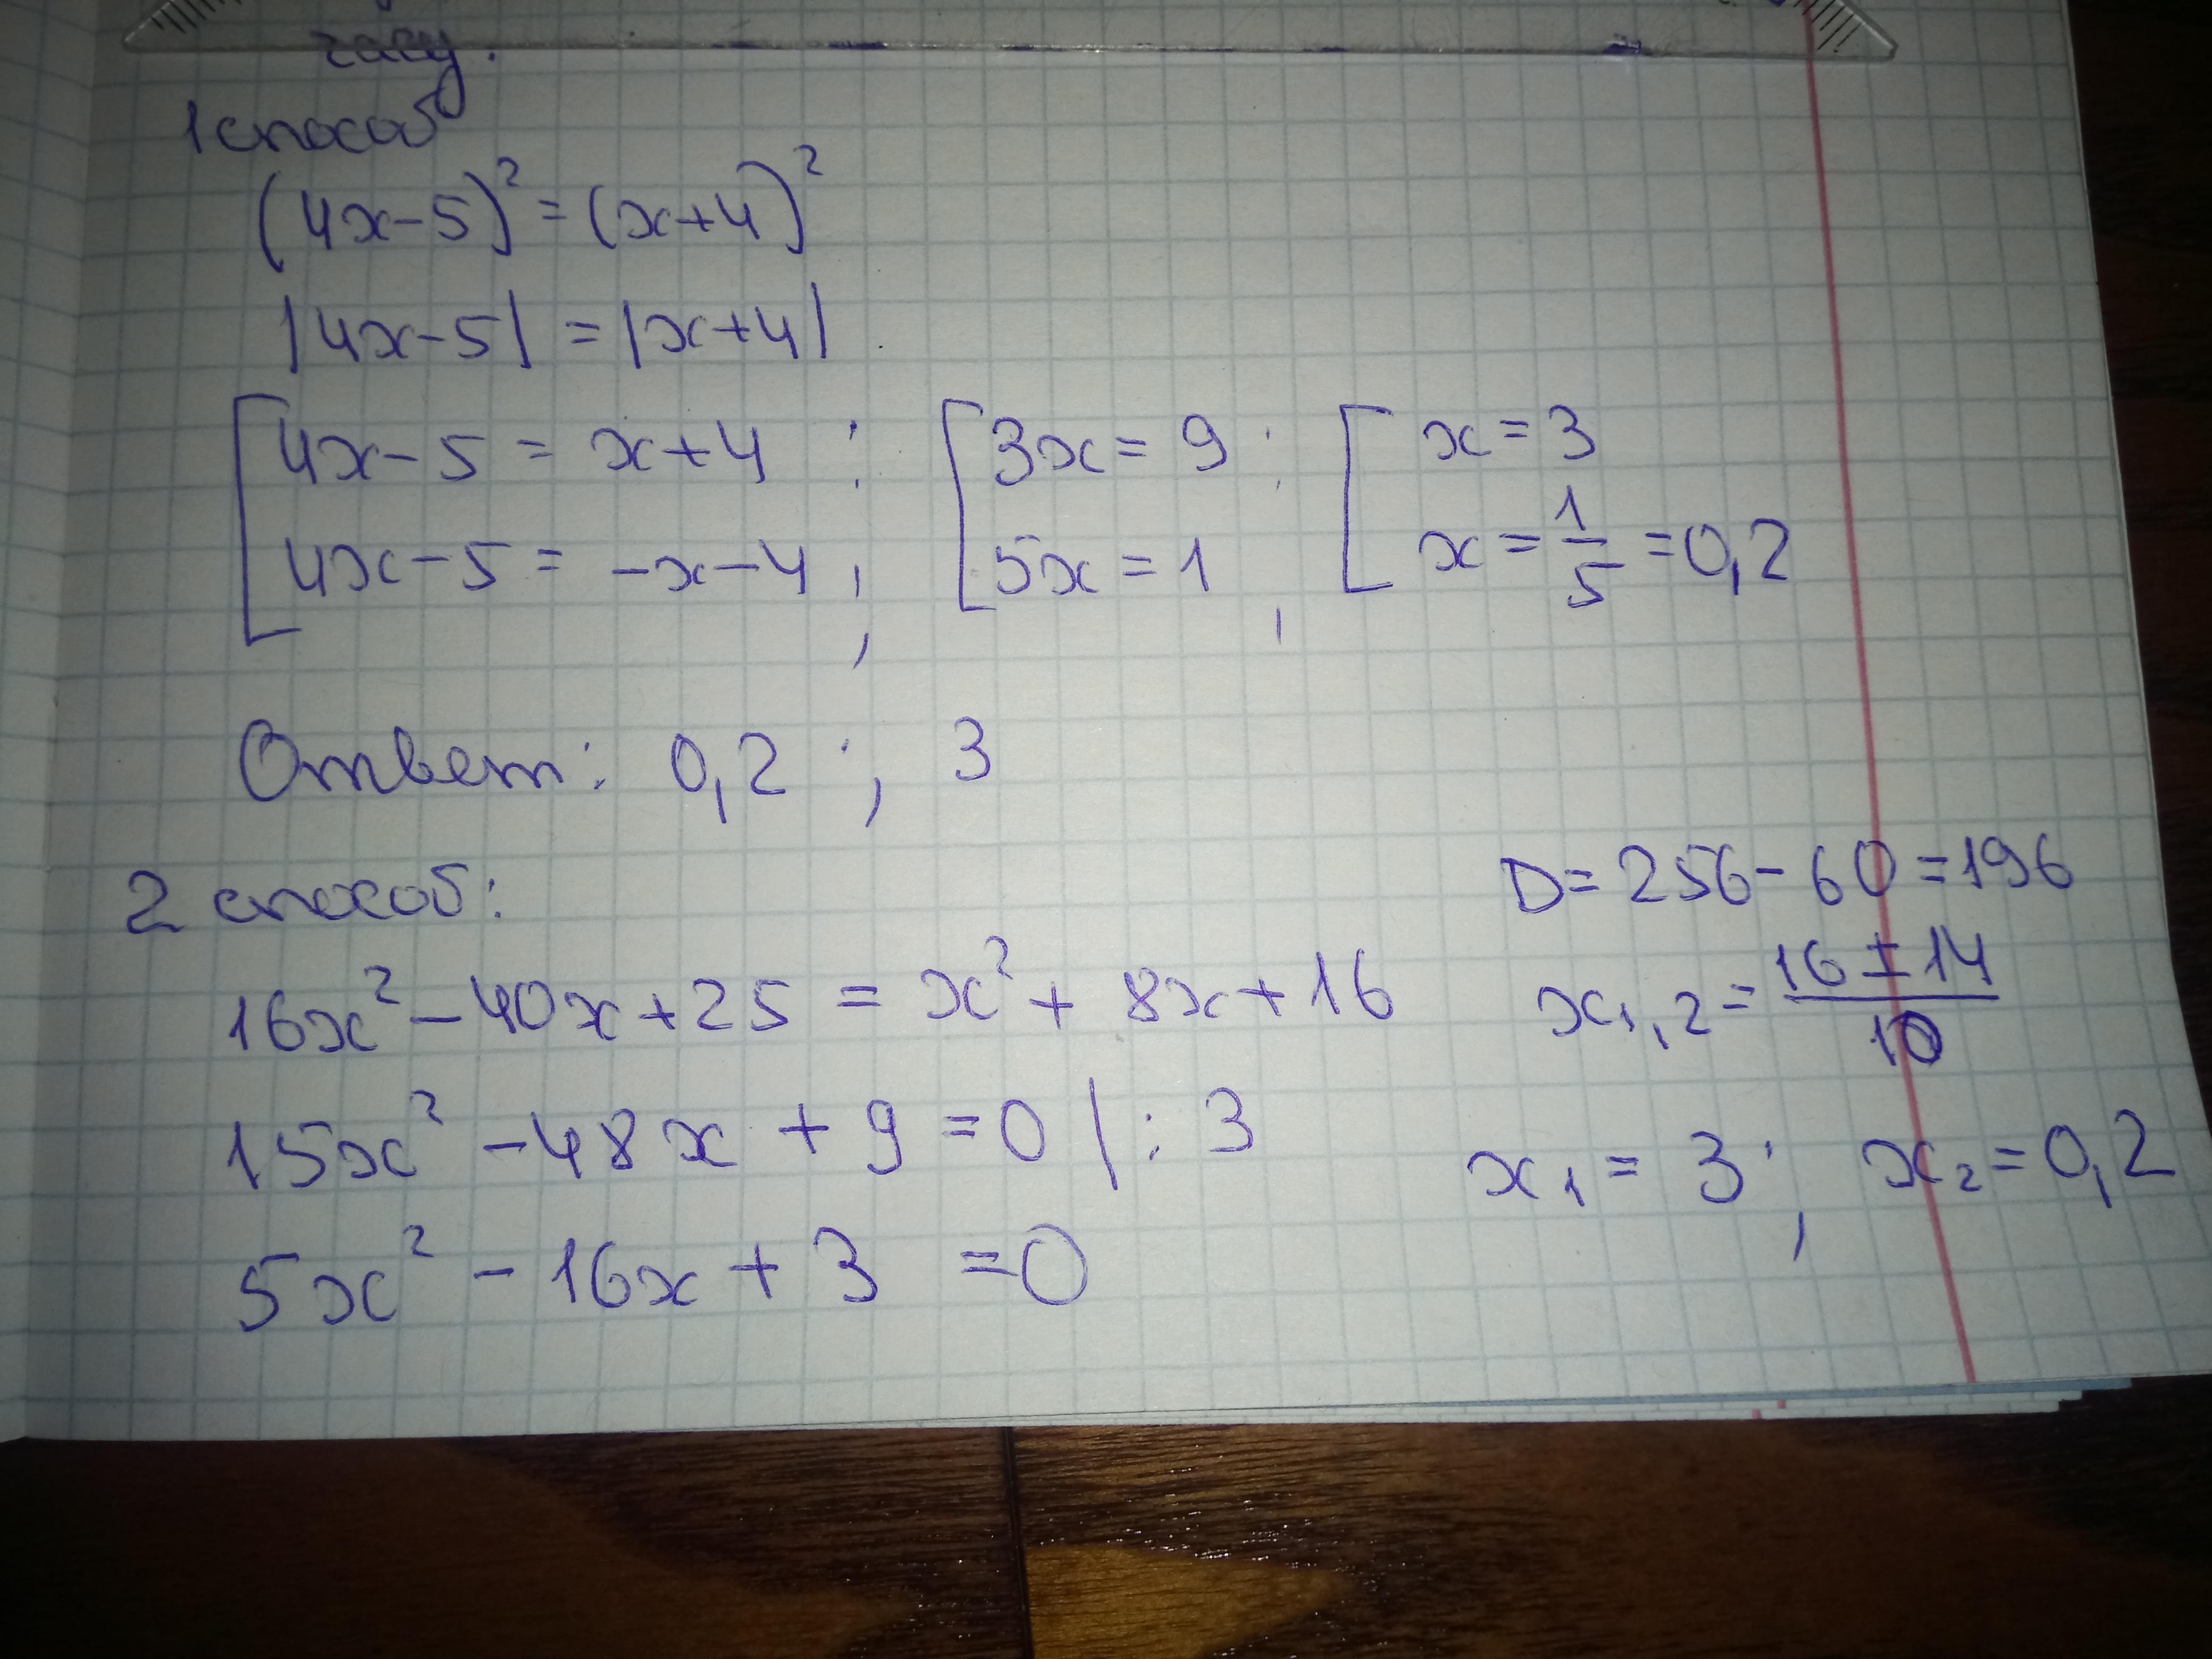 часу.
1 способ
(4x-5)² = (x+4)²
|4x-5| = |x+4|
[4x-5 = x+4 ; [3x = 9 ; [x = 3
4x-5 = -x-4 ; 5x = 1 , x = 1/5 = 0,2
Ответ: 0,2 ; 3
2 способ:
16x² - 40x + 25 = x² + 8x + 16
15x² - 48x + 9 = 0 | : 3
5x² - 16x + 3 = 0
D = 256 - 60 = 196
x₁,₂ = (16 ± 14)/10
x₁ = 3 ; x₂ = 0,2